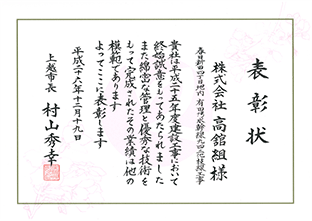 表彰状
株式会社 高舘組 様
春日新田四丁目地内 有田汚水幹線九四二枝線工事
貴社は平成二十五年度建設工事において
終始誠意をもってあたられました
また綿密な管理と優秀な技術を
もって完成されたその業績は他の
模範であります
よってここに表彰します
平成二十六年十二月十九日
上越市長 村山秀幸